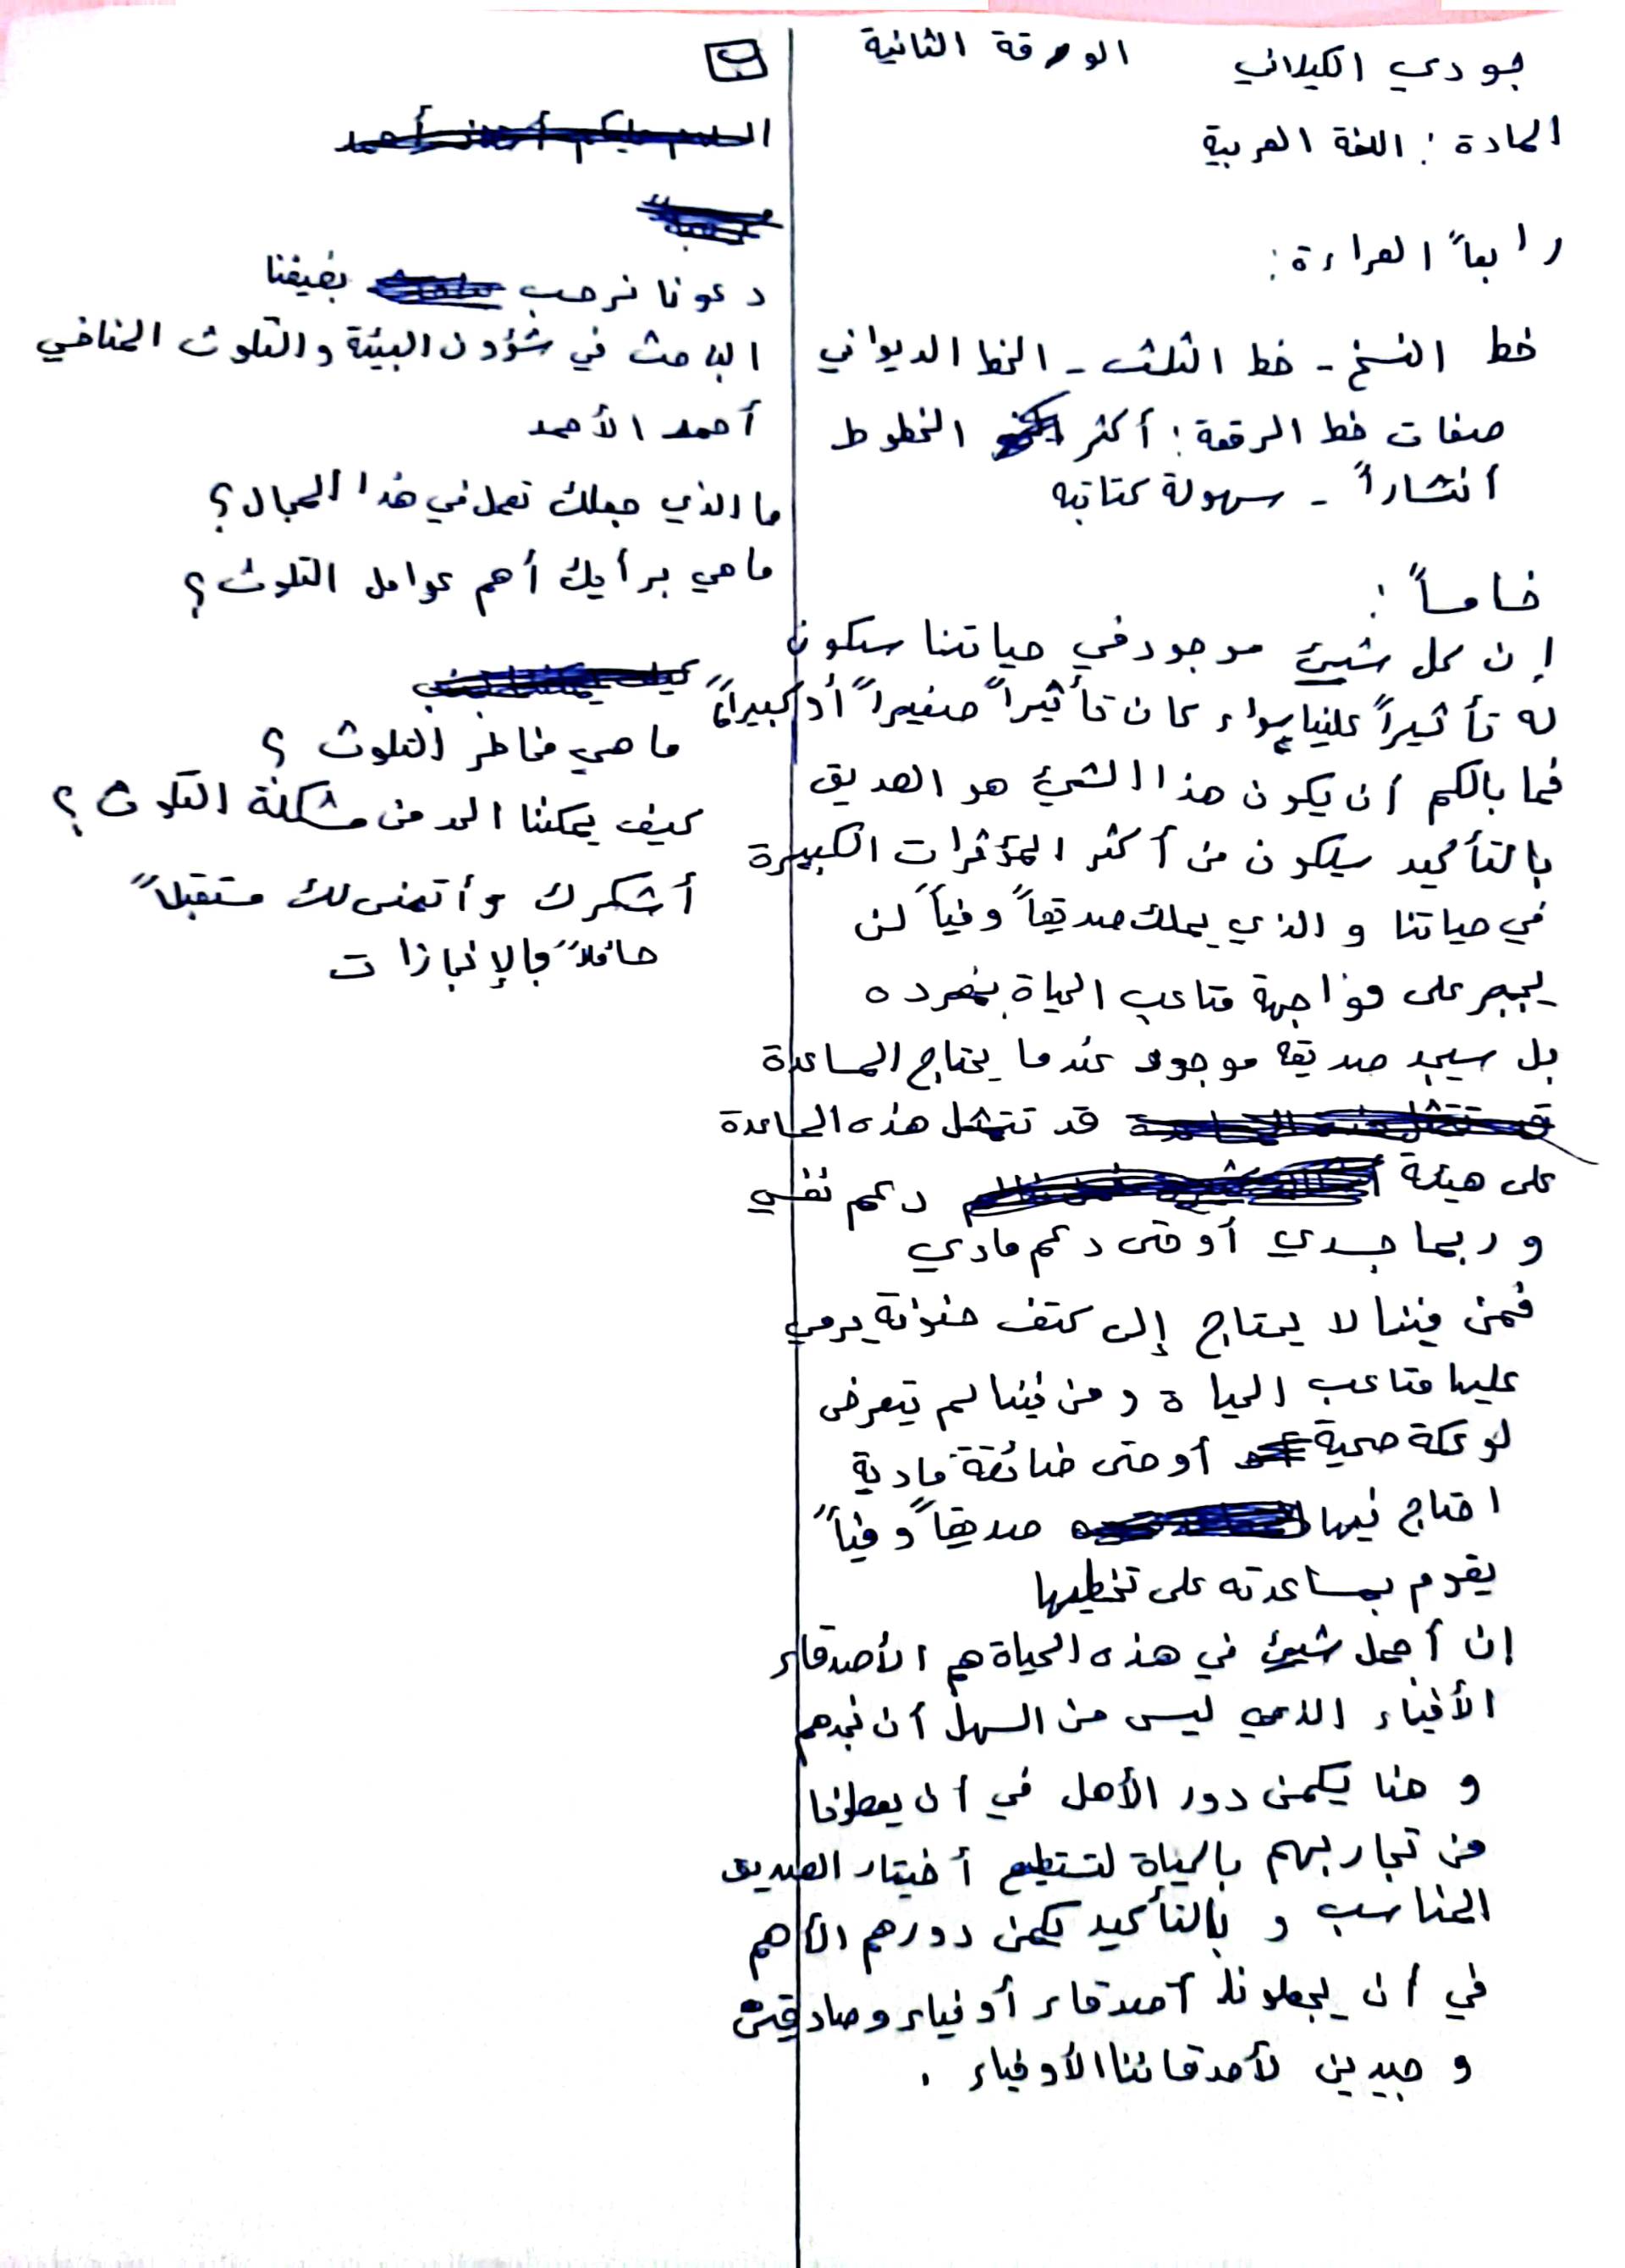 جودي الكيلاني الورقة الثانية
المادة: اللغة العربية
رابعاً القراءة:
خط النسخ - خط الثلث - الخط الديواني
صفات خط الرقعة: أكثر الخطوط
أنتشاراً - سهولة كتابته
خامساً:
إن كل شيئ موجود في حياتنا سيكون
له تأثيراً علينا سواء كان تأثيراً صغيراً أو كبيراً
فما بالكم أن يكون هذا الشيئ هو الصديق
بالتأكيد سيكون من أكثر المؤثرات الكبيرة
في حياتنا والذي يملك صديقاً وفياً لن
يجبر على مواجهة متاعب الحياة بمفرده
بل سيجد صديقه موجود عندما يحتاج المساعدة
قد تتمثل هذه المساعدة
على هيئة دعم نفسي
وربما جسدي أو حتى دعم مادي
فمن فيننا لا يحتاج إلى كتف حنونة يرمي
عليها متاعب الحياة ومن فينا لم يتعرض
لوعكة صحية أو حتى ضائقة مادية
احتاج فيها صديقاً وفياً
يقوم بمساعدته على تخطيها
إن أجمل شيئ في هذه الحياة هم الأصدقاء
الأفياء الذي ليس من السهل أن نجدهم
و هنا يكمن دور الأهل في أن يعطونا
من تجاربهم بالحياة لنستطيع أختيار الصديق
المناسب و بالتأكيد يكمن دورهم الأهم
في أن يجعلونا أصدقاء أوفياء وصادقين
و جيدين لأصدقائنا الأوفياء .
ب
دعونا نرحب بضيفنا
الباحث في شؤون البيئة والتلوث المناخي
أحمد الأحمد
ما الذي جعلك تعمل في هذا المجال؟
ما هي برأيك أهم عوامل التلوث؟
ما هي مخاطر التلوث ؟
كيف يمكننا الحد من مشكلة التلوث؟
أشكرك وأتمنى لك مستقبلاً
حافلاً بالإنجازات